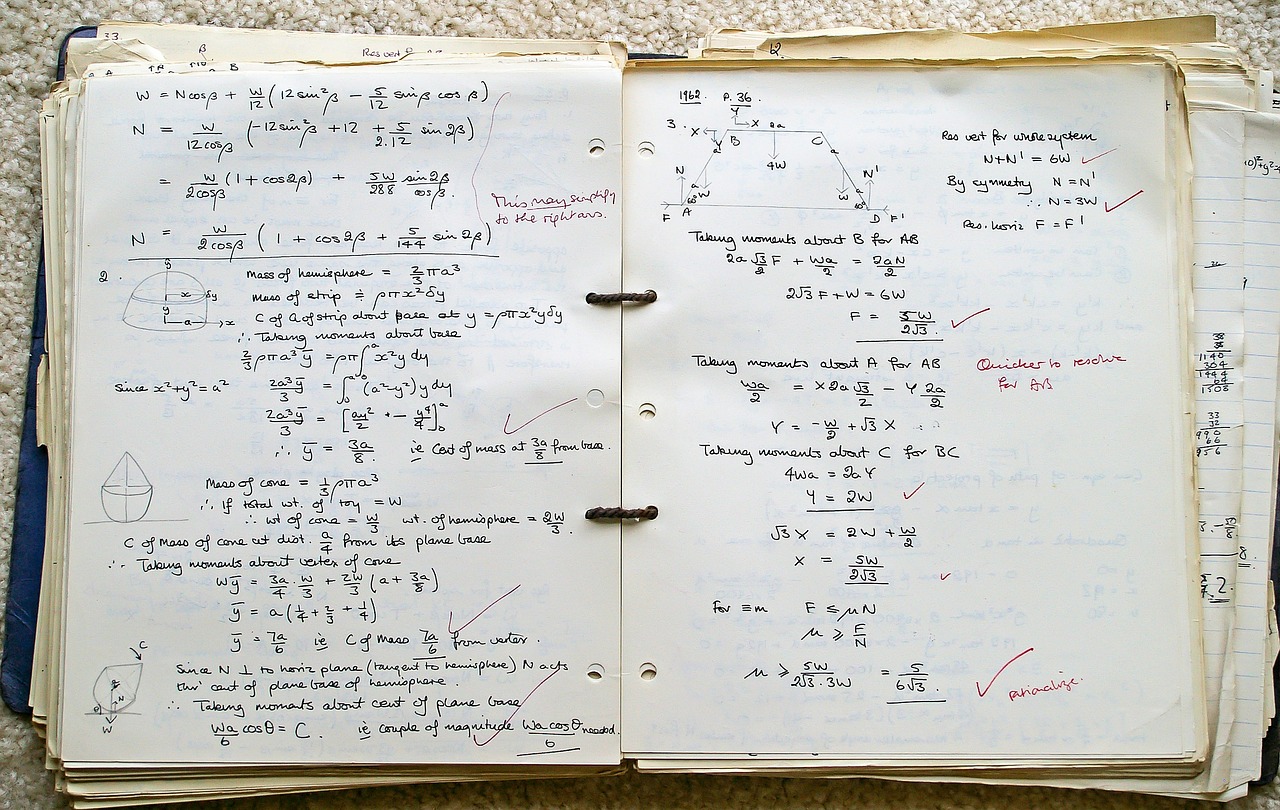 33.
β
Res vert
B
W = Ncosβ + W/12 (12sin²β − 5/12 sinβ cosβ)
N = W/12cosβ (−12sin²β + 12 + 5/2.12 sin2β)
= W/2cosβ (1 + cos2β) + 5W/288 sin2β/cosβ.
This may simplify
to the right ans.
N = W/2cosβ (1 + cos2β + 5/144 sin2β)
2.
y
x δy
y
a x
Mass of hemisphere = 2/3 πa³
Mass of strip ≑ ρπx²δy
C of G of strip about base at y = ρπx²yδy
∴ Taking moments about base
2/3 ρπa³ȳ = ρπ∫₀ᵃ x²y dy
Since x²+y²=a² 2a³ȳ/3 = ∫₀ᵃ (a²−y²)y dy
2a³ȳ/3 = [ay²/2 − y⁴/4]₀ᵃ
∴ ȳ = 3a/8 ie Cent of mass at 3a/8 from base.
Mass of cone = 1/3 ρπa³
∴ If total wt. of toy = W
∴ wt of cone = W/3 wt. of hemisphere = 2W/3.
C of Mass of cone at dist. a/4 from its plane base
∴ Taking moments about vertex of cone
Wȳ = 3a/4 . W/3 + 2W/3 (a + 3a/8)
ȳ = a(1/4 + 2/3 + 1/4)
ȳ = 7a/6 ie C of Mass 7a/6 from vertex.
C
θ
N
W
Since N ⊥ to horiz plane (tangent to hemisphere) N acts
thro' cent of plane base of hemisphere.
∴ Taking moments about cent of plane base
Wa/6 cosθ = C. ie couple of magnitude Wa cosθ/6 needed.
12.
1962. P. 36.
3.
Y
X
X
2a
B
C
Y
a
a
4W
N
a
W
60°
F
A
N'
a
W
60°
D
F'
Res vert for whole system
N+N' = 6W
By symmetry N = N'
∴ N = 3W
Res. horiz F = F'
Taking moments about B for AB
2a √3/2 F + Wa/2 = 2aN/2
2√3 F + W = 6W
F = 5W/2√3.
Taking moments about A for AB
Quicker to resolve
for AB
Wa/2 = X 2a √3/2 − Y 2a/2
Y = −W/2 + √3 X
Taking moments about C for BC
4Wa = 2aY
Y = 2W
√3 X = 2W + W/2
X = 5W/2√3
For ≡m F ≤ μN
μ ≥ F/N
μ ≥ 5W/2√3.3W = 5/6√3.
rationalize.
38
38
1140
304
1444
64
1508
33
32
990
66
956